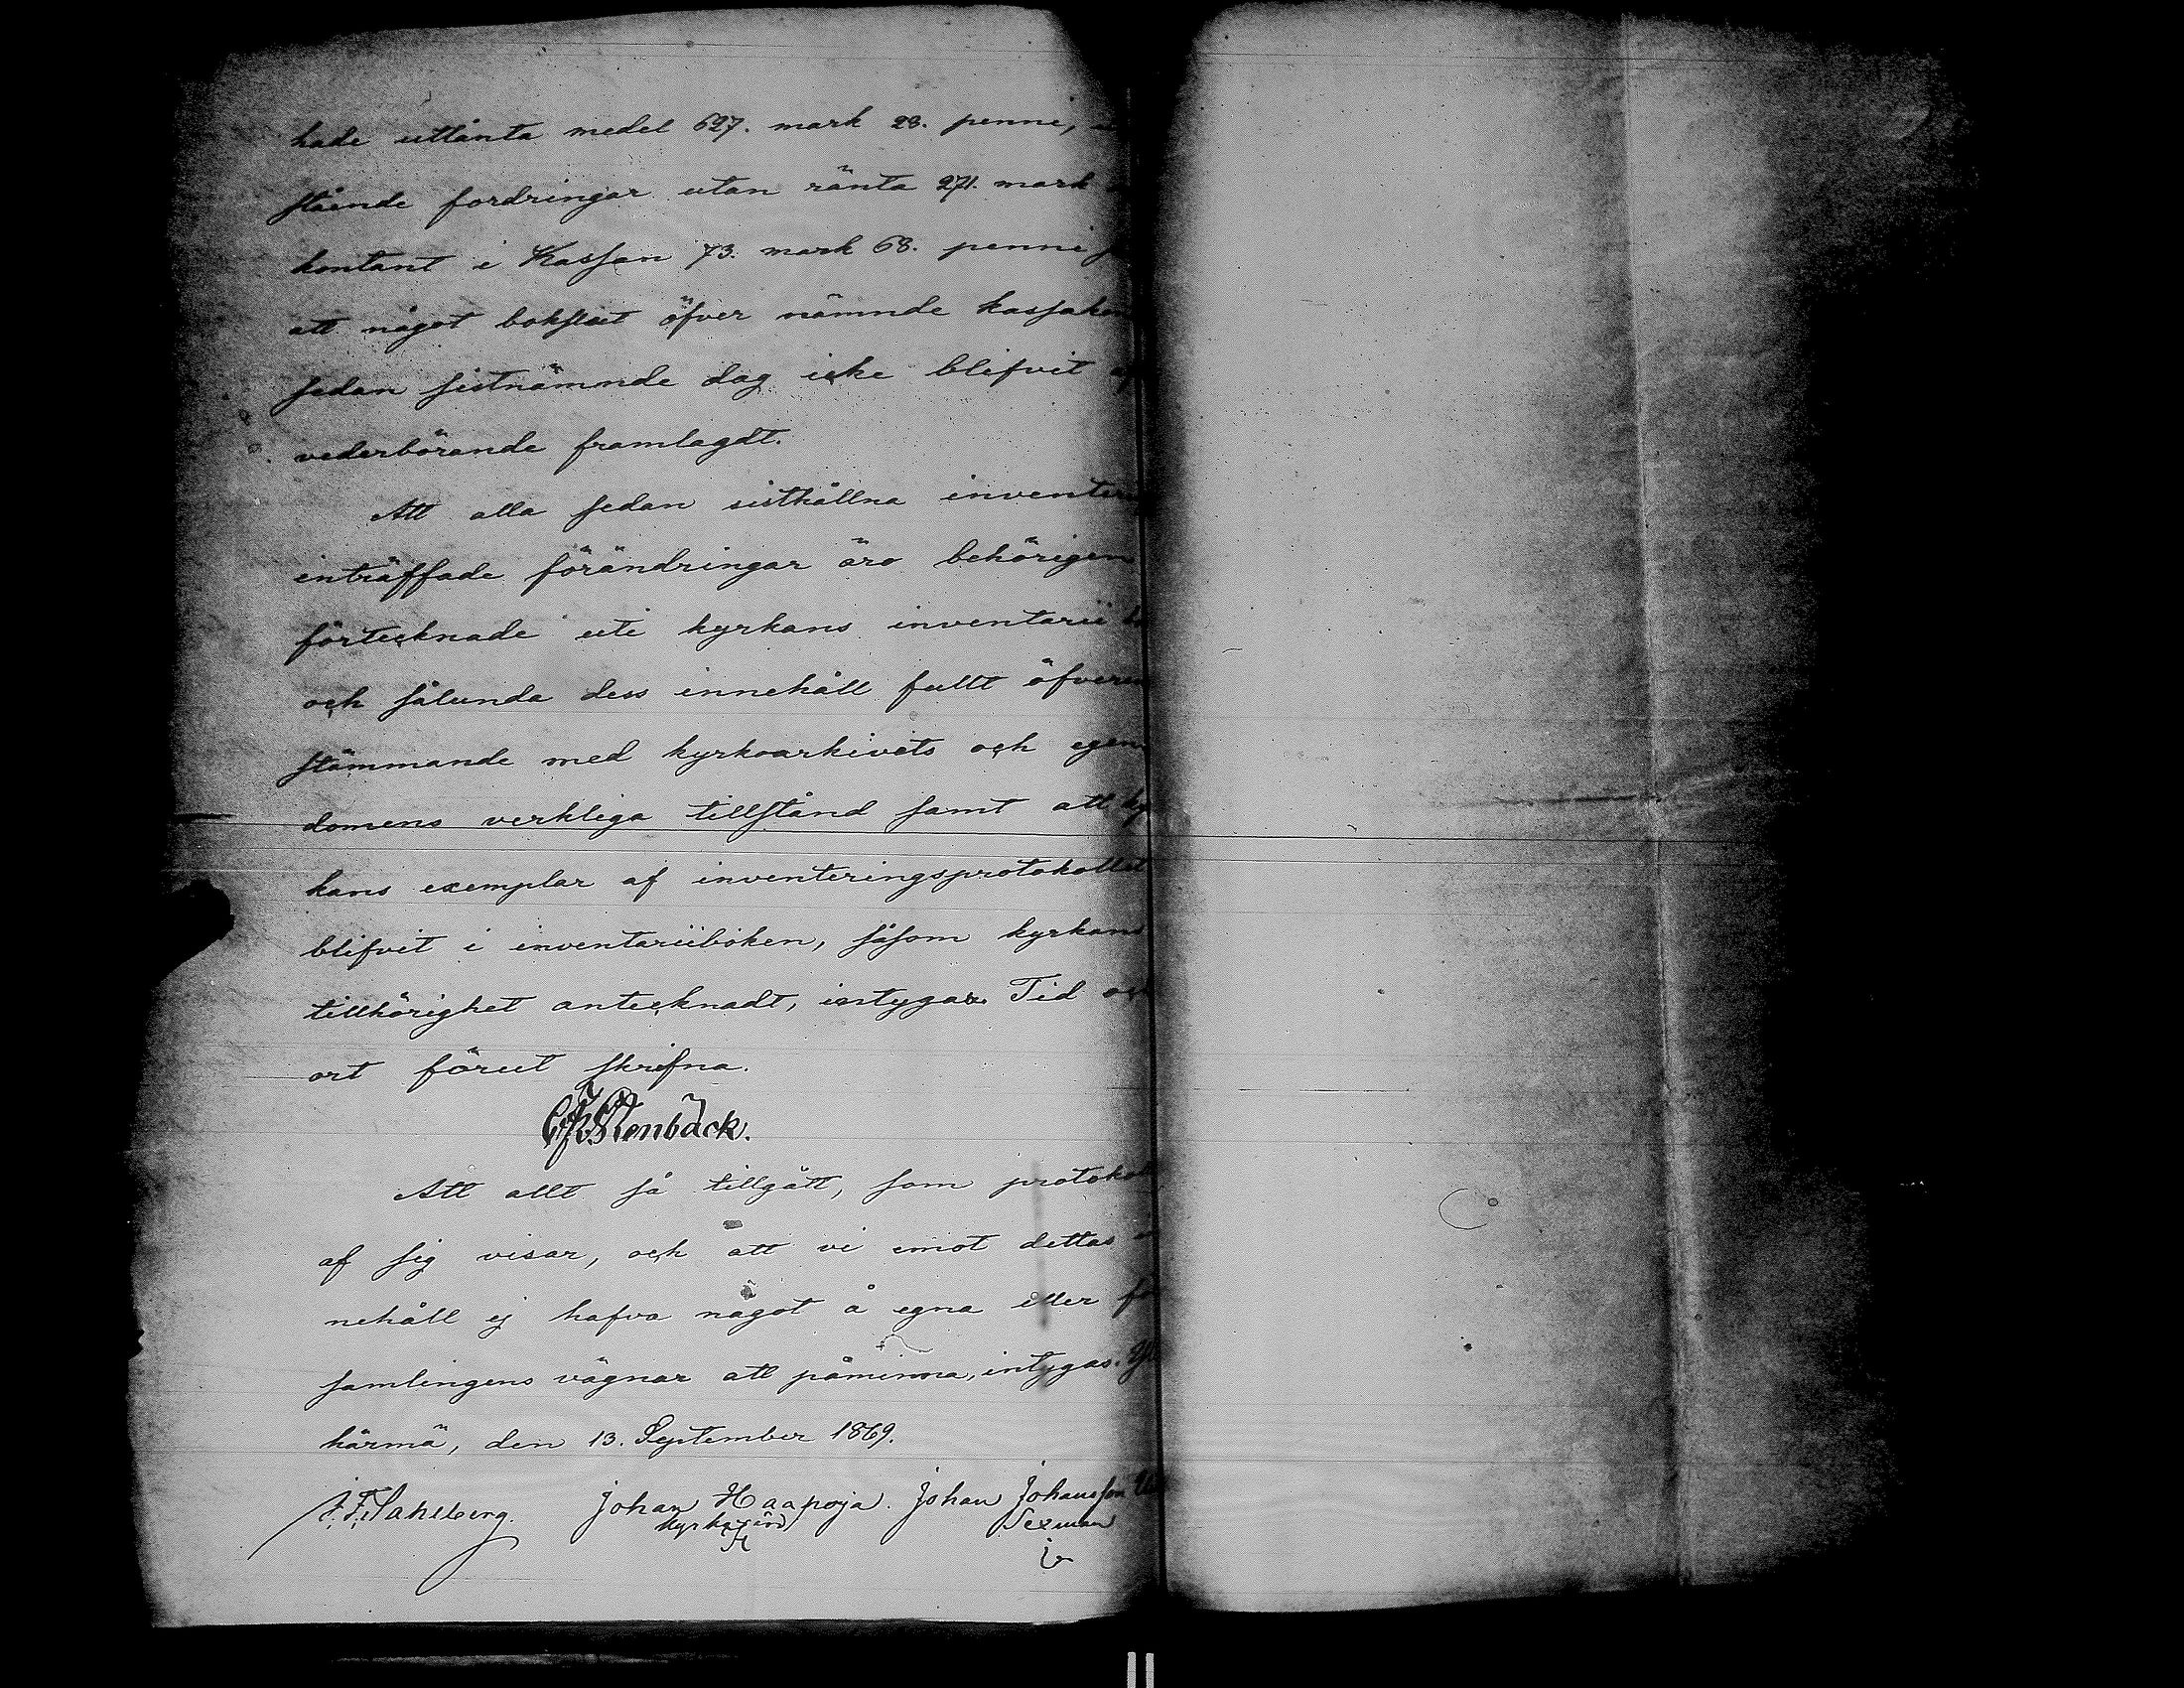 hade utlånta medel 627. mark 28. penni,
stående fordringar utan ränta 271. mark
kontant i Kassan 73. mark 68. penni
att något bokslut öfver nämnde kassakon
sedan sistnämnde dag icke blifvit af
vederbörande framlagdt.
Att alla sedan sisthållna inventering
inträffade förändringar äro behörigen
förtecknade uti kyrkans inventarii bo
och sålunda dess innehåll fullt öfverens
stämmande med kyrkoarkivets och egen
domens verkliga tillstånd samt att kyr
kans exemplar af inventeringsprotokollet
blifvit i inventariiboken, såsom kyrkans
tillhörighet antecknadt, intygar. Tid och
ort förut skrifna.
Stenbäck.
Att allt så tillgått, som protokoll
af sig visar, och att vi emot dettas in
nehåll ej hafva något å egna eller för
samlingens vägnar att påminna, intygas.
härmä, den 13. September 1869.
J. F. Sahlberg. Johan Haapoja. Johan Johansson
Kyrkovärd Sexman